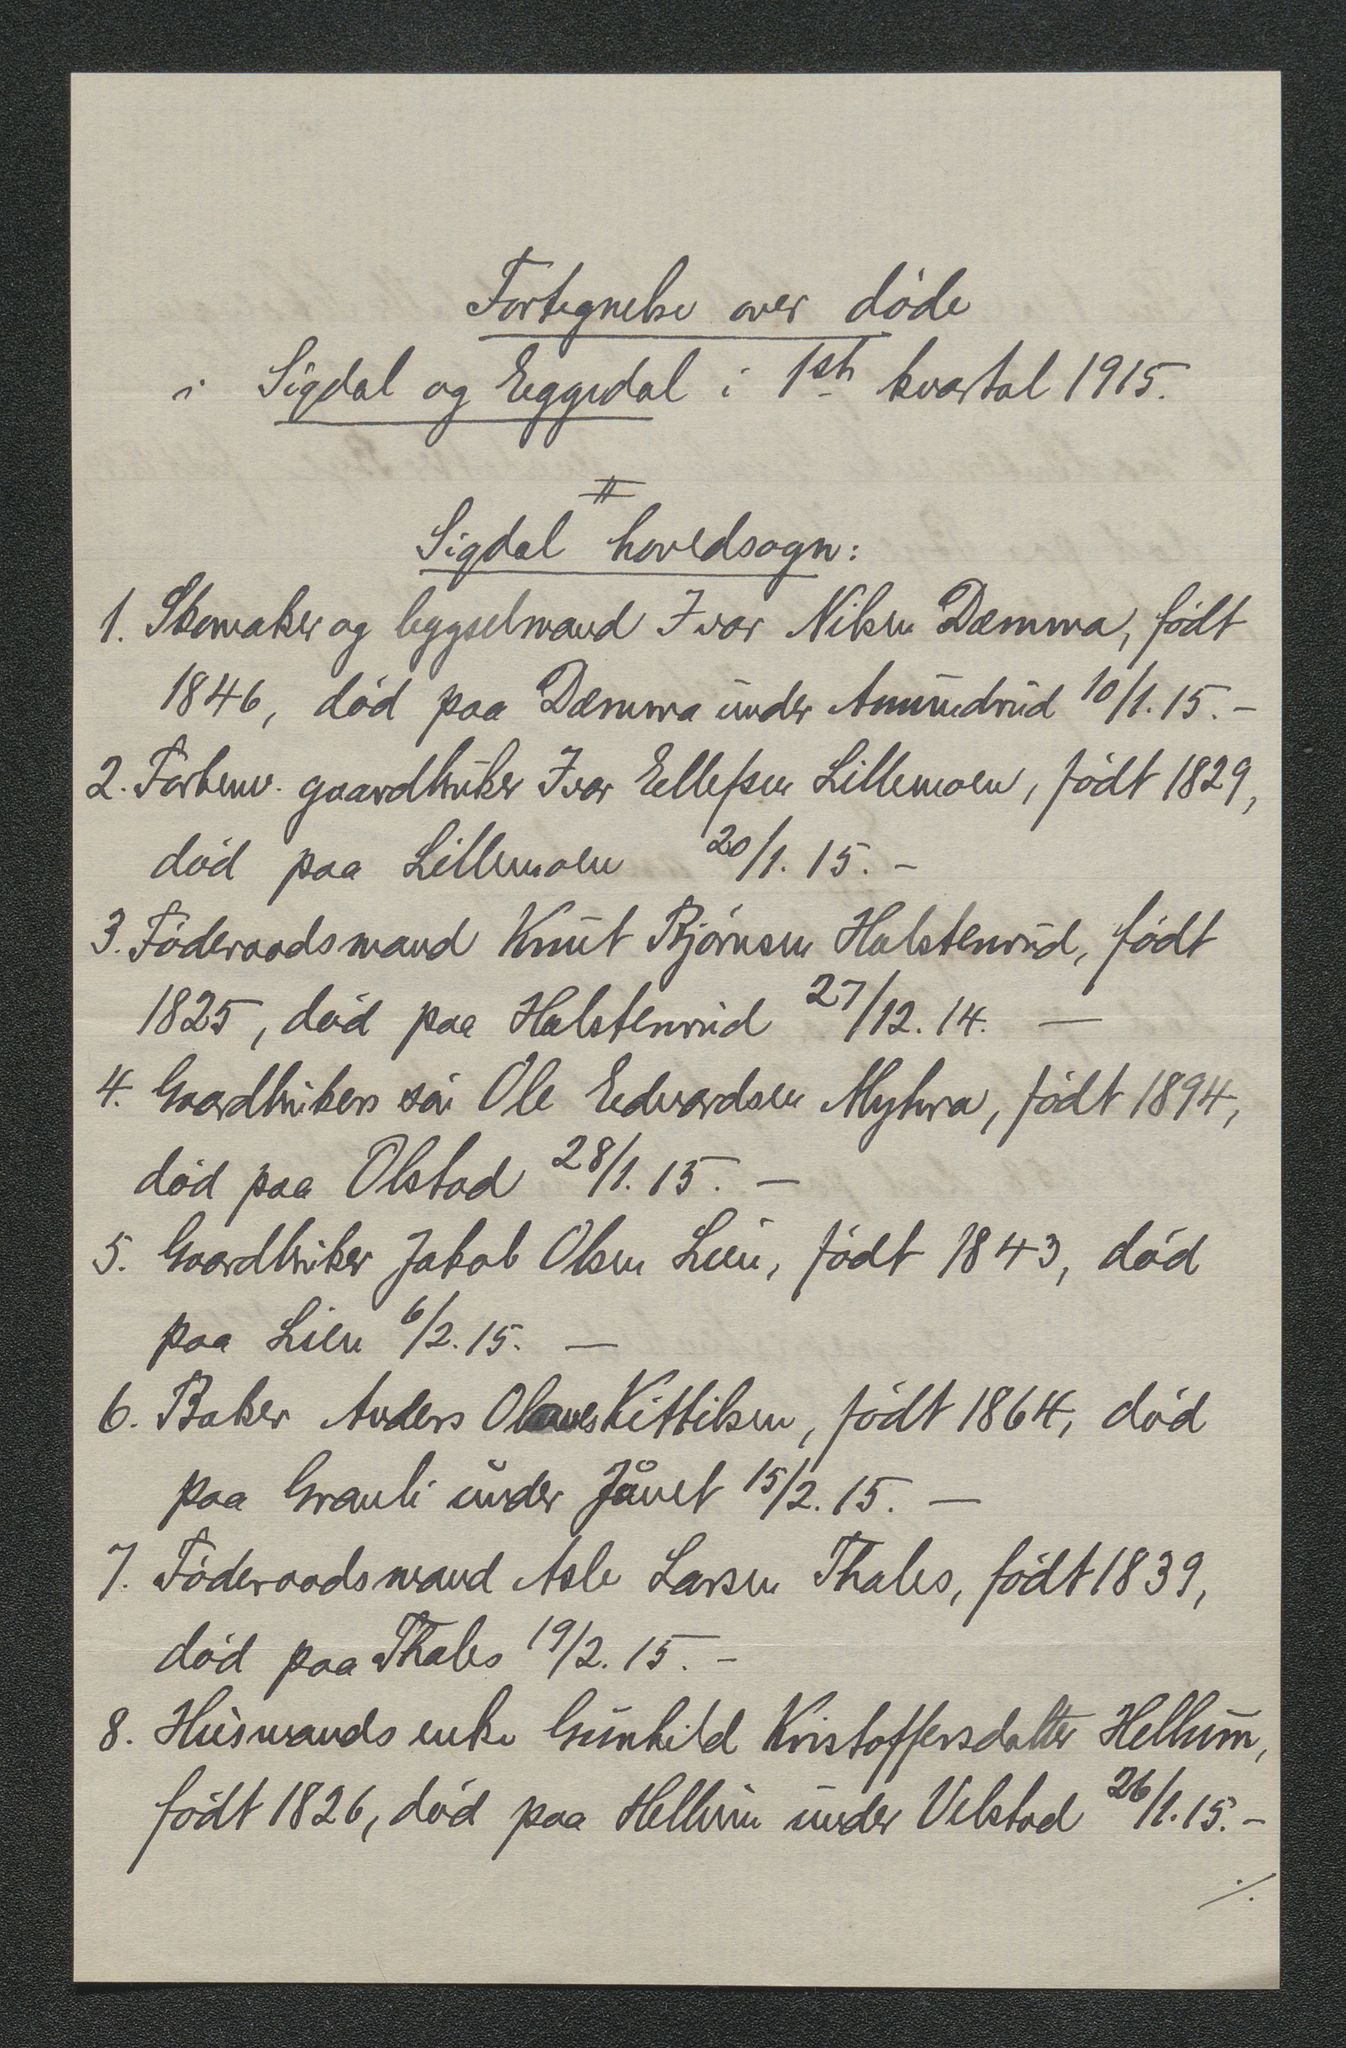 Fortegnelse over døde
i Sigdal og Eggedal i 1ste kvartal 1915.
Sigdal hovedsogn:
1. Skomaker og bygselmand Ivar Nilsen Dæmma, født
1846, død paa Dæmma under Amundrud 10/1. 15. -
2. Forhenv. gaardbruker Ivar Ellefsen Lillemoen, født 1829,
død paa Lillemoen 20/1. 15. -
3. Føderaadsmand Knut Bjørnsen Halstenrud, født
1825, død paa Halstenrud 27/12. 14. —
4. Gaardbrukers søn Ole Edvardsen Myhra, født 1894,
død paa Olstad 28/1. 15. —
5. Gaardbruker Jakob Olsen Lien, født 1843, død
paa Lien 6/2. 15. —
6. Baker Anders Olaves Kittilsen, født 1864, død
paa Grauli under 15/2. 15. —
7. Føderaadsmand Asle Larsen Thales, født 1839,
død paa Thales 19/2. 15. -
8. Husmands enke Gunhild Kristoffersdatter Hellum,
født 1826, død paa Hellum under Velstad 26/1. 15. -
./.